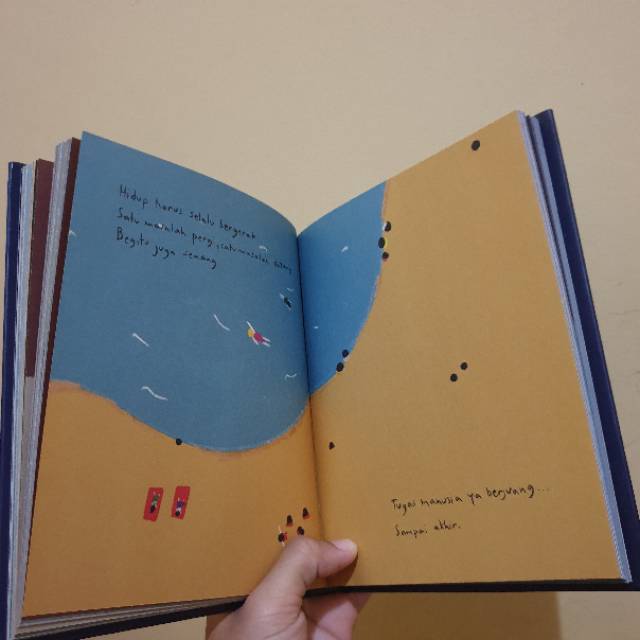 Hidup harus selalu bergerak
Satu masalah pergi, satu masalah datang
Begitu juga senang
Tugas manusia ya berjuang...
Sampai akhir.